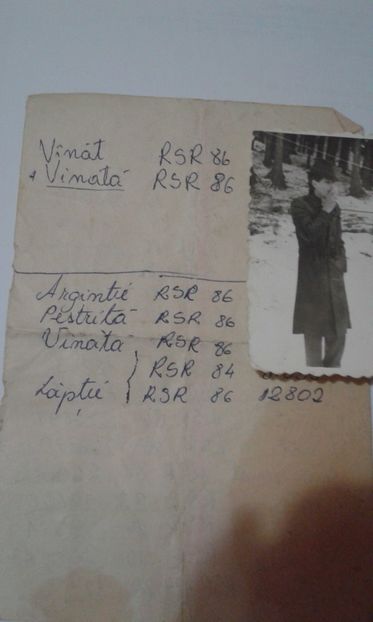 Vînăt RSR 86
+ Vînată RSR 86
Argintié RSR 86
Pestrită RSR 86
Vînată RSR 86
RSR 84
Lăptié RSR 86 12802